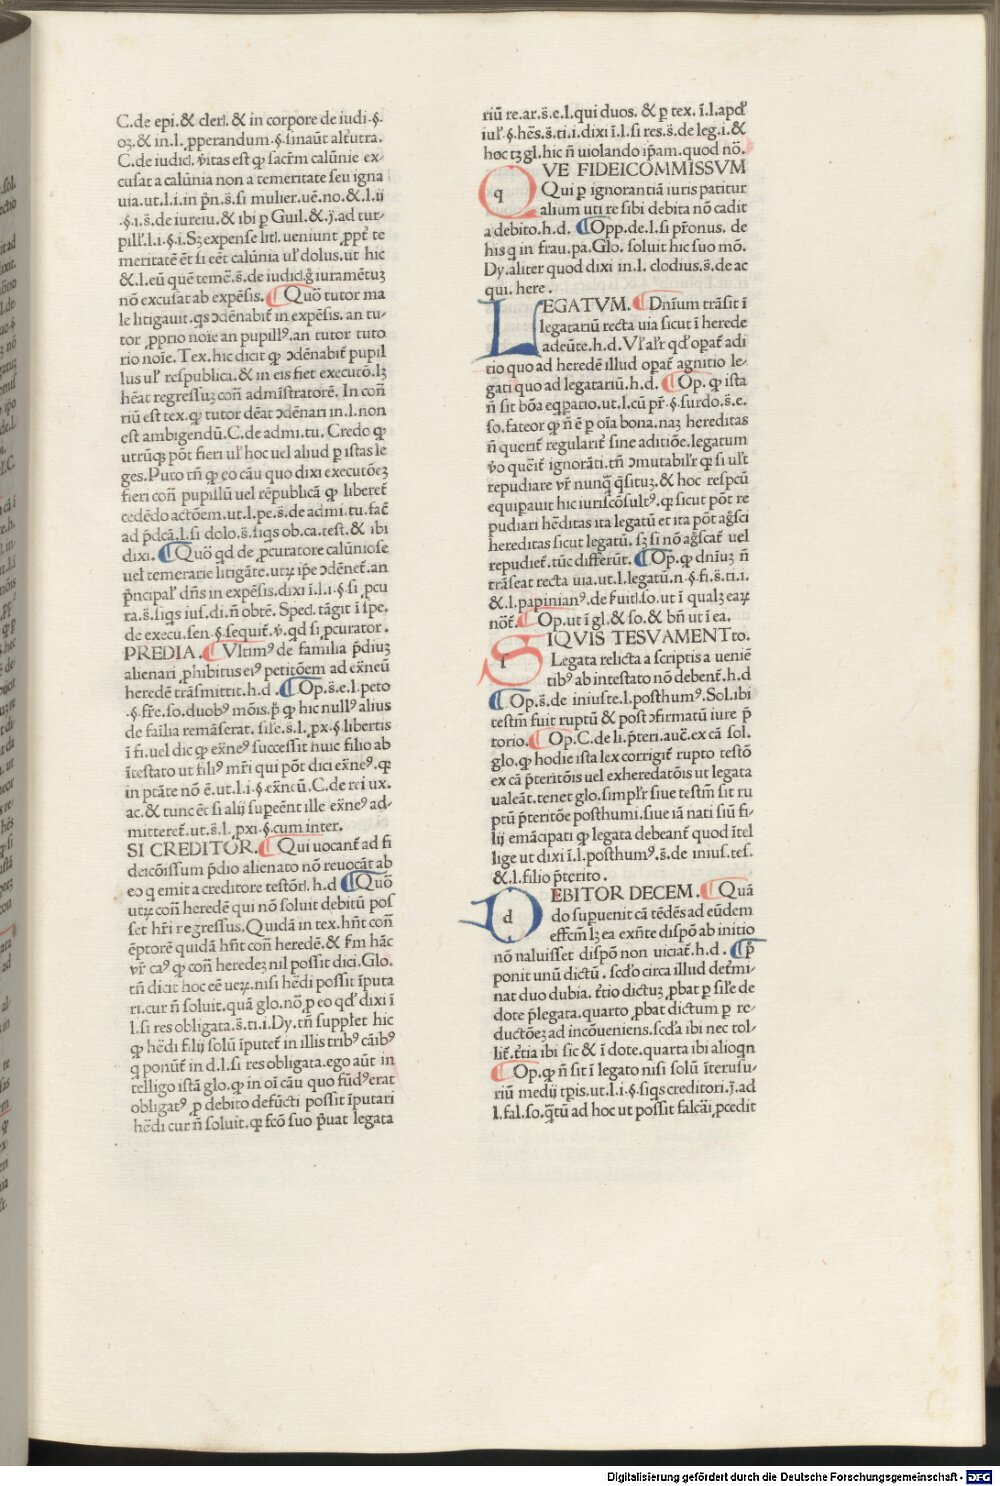 C.de epi.& cleri. & in corpore de iudi.§.
oꝫ.& in.l. ꝓperandum.§.sinaūt alt̄utra.
C.de iudicī. v̄itas est ꝙ sacr̄m calūnie ex⸗
cusat a calūnia non a temeritate seu igna
uia.ut.l.i.in pn̄.s̄.si mulier.uē.no.&.l.ij
.§.i.s̄.de iureiu.& ibi p Guil.&.j.ad tur⸗
pill̄.l.i.§.i.Sꝫ expense litī.ueniunt ꝓpt̄ te
meritatē ēt si eēt calūnia ul̄ dolus.ut hic
&.l.eū quē temē.s̄.de iudicī.ḡ iuramētuꝫ
nō excusat ab expēsis. Quō tutor ma
le litigauit.qs ɔdēnabit̄ in expēsis. an tu⸗
tor ꝓprio noīe an pupillꝰ.an tutor tuto
rio noīe. Tex.hic dicit ꝙ ɔdēnabit̄ pupil
lus ul̄ respublica.& in eis fiet executō.lꝫ
hēat regressuꝫ con̄ admīstratorē. In con̄
riū est tex.ꝙ tutor dēat ɔdēnari in.l.non
est ambigendū.C.de admi.tu. Credo ꝙ
utrūqꝫ pōt fieri ul̄ hoc uel aliud p istas le
ges. Puto tn̄ ꝙ eo cāu quo dixi executōeꝫ
fieri con̄ pupillū uel rēpublicā ꝙ liberet̄
cedēdo actōem.ut.l.pe.s̄.de admi.tu.fac̄
ad p̄dcā.l.si dolo.s̄.siqs ob.ca.test.& ibi
dixi. Quō qd de ꝓcuratore calūniose
uel temerarie litigāte.utꝝ ip̄e ɔdēnet̄.an
p̄ncipal̄ dn̄s in expēsis.dixi ī.l.i.§.si ꝓcu
ra.s̄.siqs ius.di.n̄ obtē. Specī. tāgit ī spe.
de execu.sen.§.sequit̄.v̄.qd si ꝓcurator.
PREDIA. Vltimꝰ de familia p̄diuꝫ
alienari ꝓhibitus eiꝰ petitōem ad exn̄eū
heredē trāsmittit.h.d. Op.s̄.e.l.peto
.§.fr̄e.so.duobꝰ mōis.p̄ ꝙ hic nullꝰ alius
de faīlia remāserat. sīle.s̄.l.ꝓx.§.libertis
ī fi.uel dic ꝙ exn̄eꝰ successit huic filio ab
ītestato ut filiꝰ mr̄i qui pōt dici exn̄eꝰ.ꝙ
in ptāte nō ē.ut.l.i.§.exn̄eū.C.de rei ux.
ac.& tunc ēt si alij supeēnt ille exn̄eꝰ ad⸗
mitteret̄.ut.s̄.l.ꝓxi.§.cum inter.
SI CREDITOR. Qui uocant̄ ad fi
deicōissum p̄dio alienato nō reuocāt ab
eo q emit a creditore testōrī.h.d Quō
utꝝ con̄ heredē qui nō soluit debitū pos
set hr̄i regressus. Quidā in tex.hn̄t con̄
ēptorē quidā hn̄t con̄ heredē.& f̄m hāc
vr̄ caꝰ ꝙ con̄ heredeꝫ nil possit dici. Glo.
tn̄ dicit hoc eē ueꝝ.nisi hēdi possit īputa
ri.cur n̄ soluit.quā glo.nō.p eo qd̄ dixi ī
l.si res obligata.s̄.ti.i. Dy.tn̄ supplet hic
ꝙ hēdi f.lij solū īputet̄ in illis tribꝰ cāibꝰ
q ponūt̄ in d.l.si res obligata.ego aūt in
telligo istā glo.ꝙ in oī cāu quo fūdꝰ erat
obligatꝰ ꝓ debito defūcti possit īputari
hēdi cur n̄ soluit.ꝙ fcō suo p̄uat legata
riū re.ar.s̄.e.l.qui duos. & p tex.ī.l.apd̄
iul̄.§.hēs.s̄.ti.i.dixi ī.l.si res.s̄.de leg.i.&
hoc tꝫ gl.hic n̄ uiolando ip̄am.quod nō.
QVE FIDEICOMMISSVM
Qui p ignorantiā iuris patitur
alium uti re sibi debita nō cadit
a debito.h.d. Opp.de.l.si pr̄onus. de
his q in frau.pa. Glo. soluit hic suo mō.
Dy.aliter quod dixi in.l. clodius.s̄.de ac
qui. here.
LEGATVM. Dn̄ium trāsit ī
legatariū recta uia sicut ī herede
adeūte.h.d. Vl̄ al̄r qd̄ opat̄ adi
tio quo ad heredē illud opat̄ agnitio le⸗
gati quo ad legatariū.h.d. Op. ꝙ ista
n̄ sit bōa eqpatio.ut.l.cū pr̄.§.surdo.s̄.e.
so.fateor ꝙ n̄ ē p oīa bona.naꝫ hereditas
n̄ querit̄ regularit̄ sine aditiōe.legatum
v̄o quēit̄ ignorāti.tn̄ ɔmutabil̄r ꝙ si ul̄t
repudiare vr̄ nunq̄ q̄situꝫ.& hoc respcū
equipauit hic iuriscōsultꝰ.ꝙ sicut pōt re
pudiari hēditas ita legatū et ita pōt aḡsci
hereditas sicut legatū. sꝫ si nō aḡscat̄ uel
repudiet̄.tūc differūt. Op.ꝙ dniuꝫ n̄
trāseat recta uia.ut.l.legatū.n.§.fi.s̄.ti.i.
&.l.papinianꝰ.de f̄uitī.so.ut ī qualꝫ eaꝝ
nōt̄. Op.ut ī gl.& so.& bn̄ ut ī ea.
SIQVIS TESVAMENTto.
Legata relicta a scriptis a ueniē
tibꝰ ab intestato nō debent̄.h.d
Op.s̄.de iniuste.l.posthumꝰ.Sol.ibi
testm̄ fuit ruptū & post ɔfirmatū iure p̄
torio. Op.C.de li.p̄teri.auc̄.ex cā sol.
glo.ꝙ hodie ista lex corrigit̄ rupto testō
ex cā p̄teritōis uel exheredatōis ut legata
ualeāt.tenet glo.simpl̄r siue testm̄ sit ru
ptū p̄teritōe posthumi.siue iā nati siū fi⸗
lij emācipati ꝙ legata debeant̄ quod ītel
lige ut dixi ī.l.posthumꝰ.s̄.de inius.tes.
&.l.filio p̄terito.
DEBITOR DECEM. Quā
do supuenit cā tēdēs ad eūdem
effcm̄ lꝫ ea exn̄te dispō ab initio
nō naluisset dispō non uiciat̄.h.d. p̄
ponit unū dictū. scd̄o circa illud det̄mi⸗
nat duo dubia. t̄rtio dictuꝫ ꝓbat p sīle de
dote p̄legata.quarto ꝓbat dictum p re⸗
ductōeꝫ ad incōueniens.scd̄a ibi nec tol⸗
lit̄.t̄rtia ibi sic & ī dote.quarta ibi alioqn
Op.ꝙ n̄ sit ī legato nisi solū īterusu⸗
riū medij tꝑis.ut.l.i.§.siqs creditori.j.ad
l.fal.so.q̄tū ad hoc ut possit falcāi ꝓcedit
Digitalisierung gefördert durch die Deutsche Forschungsgemeinschaft - DFG